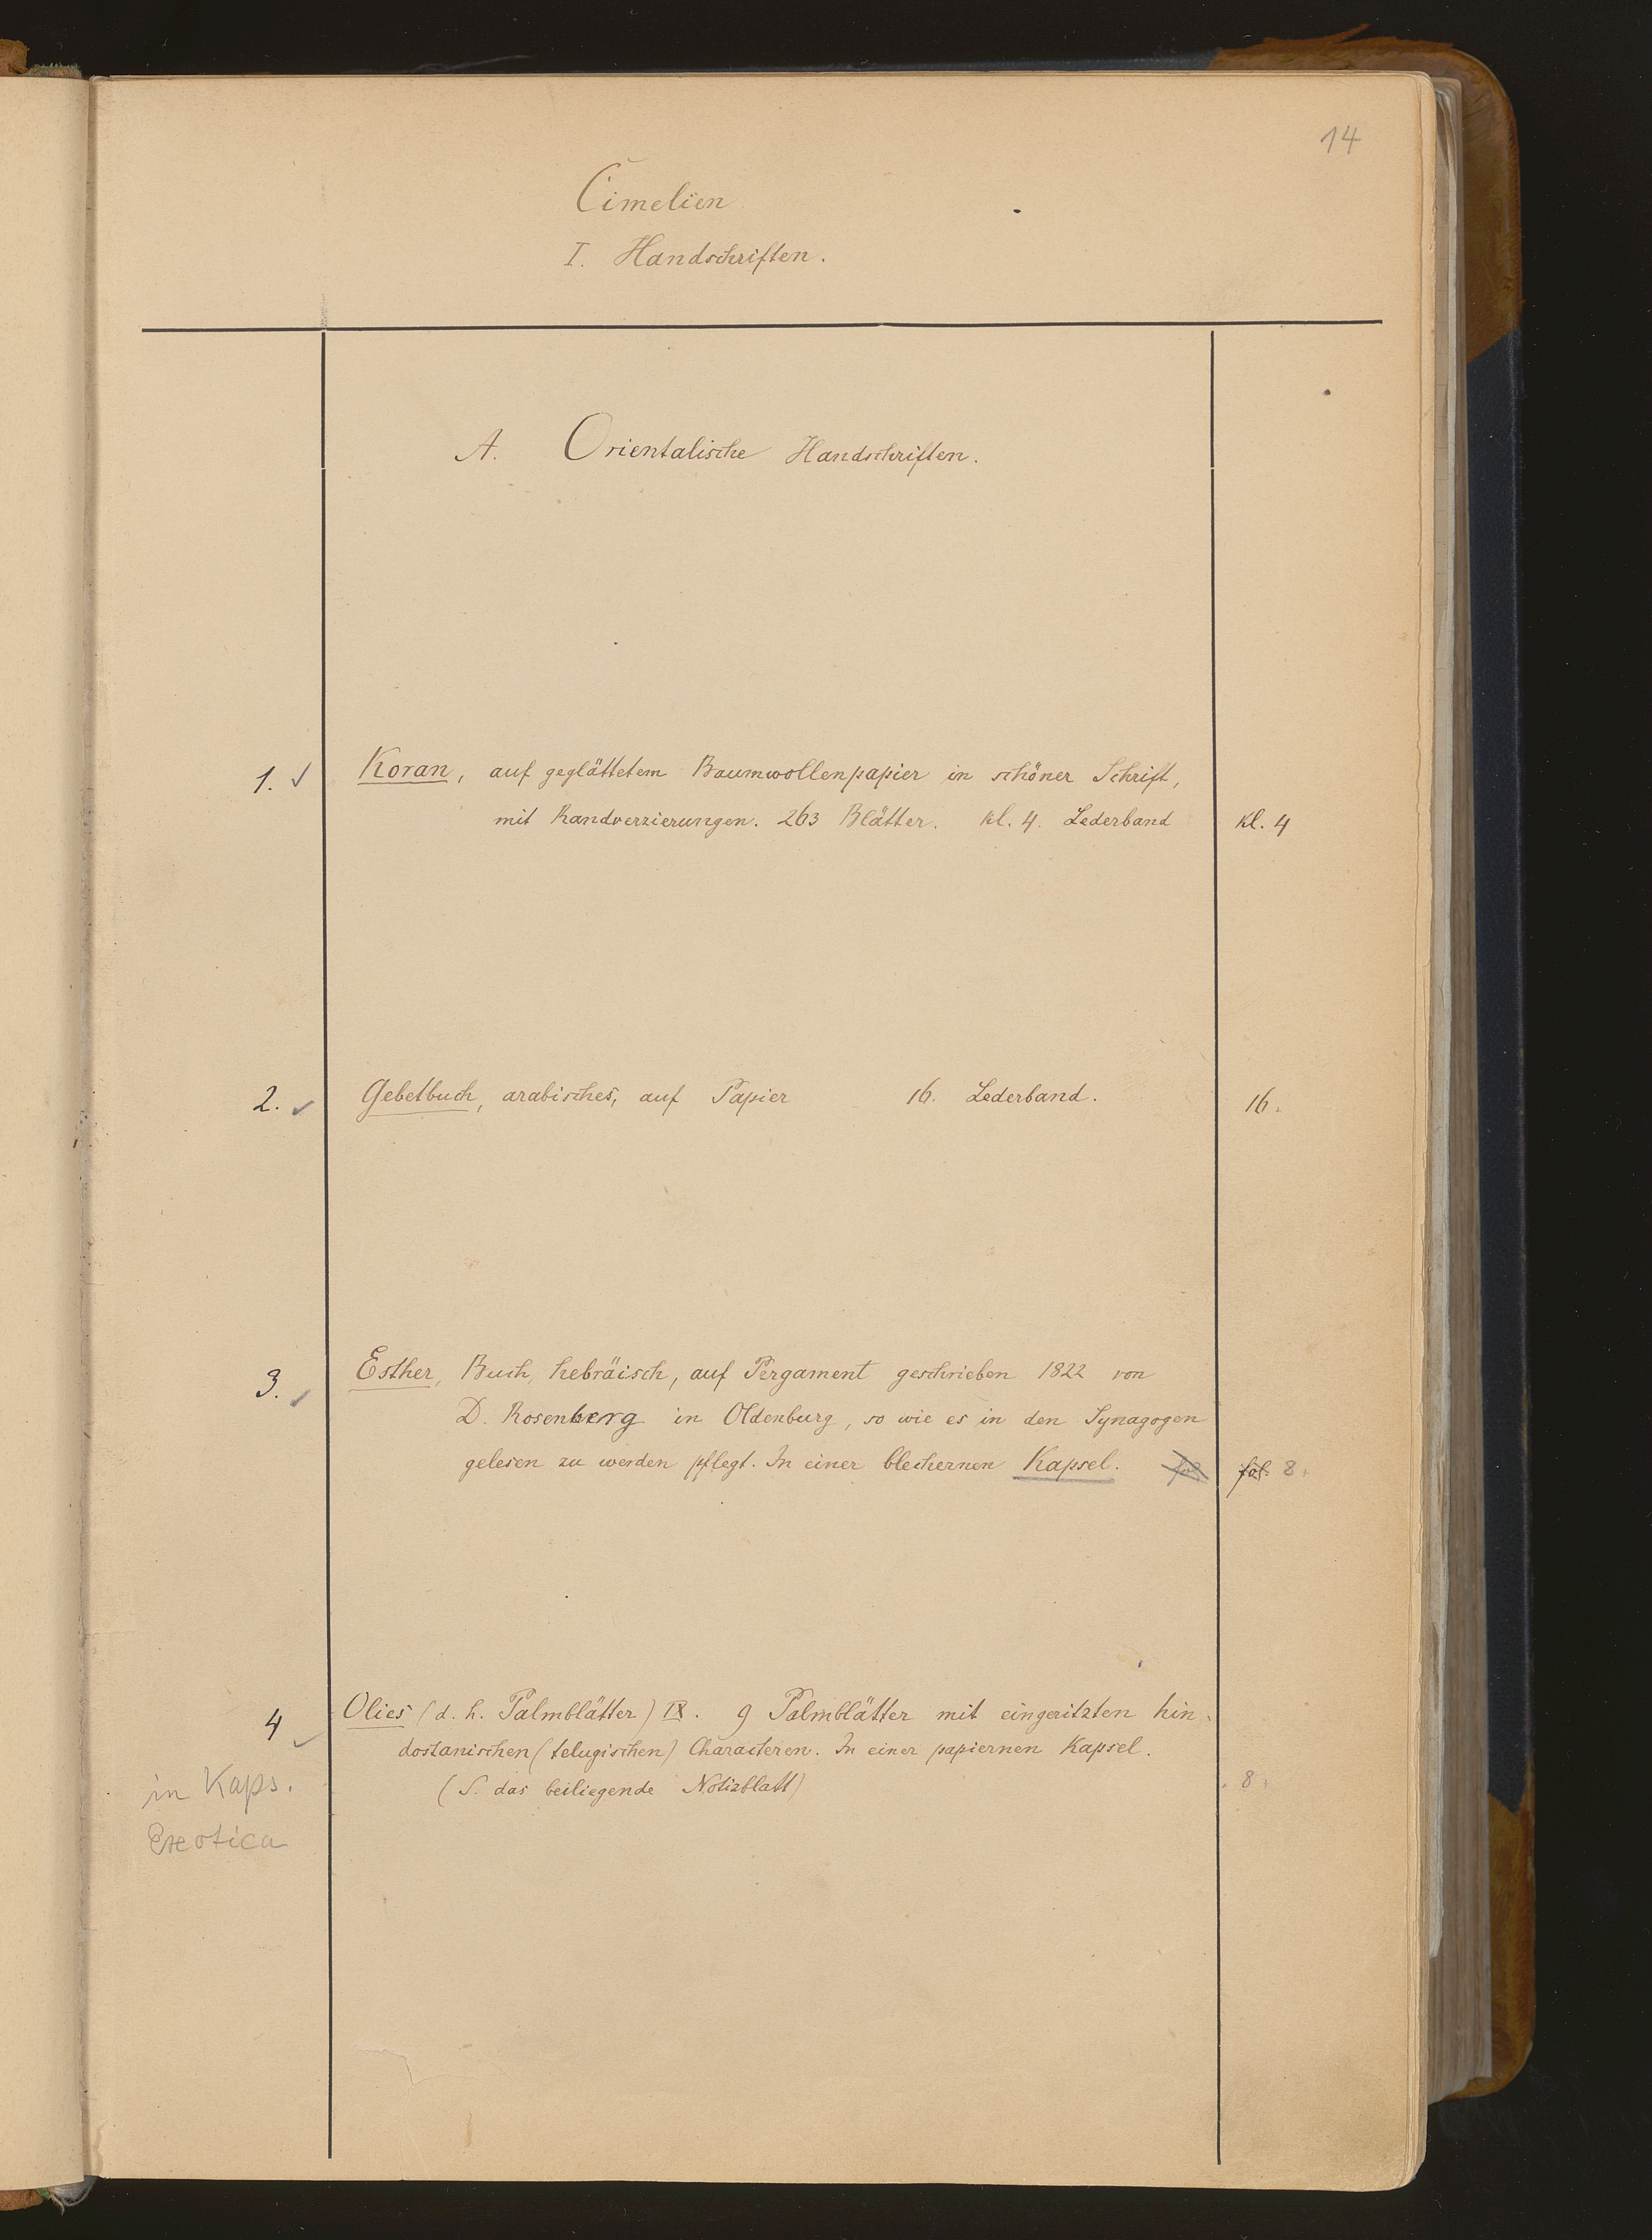 14
Cimelien
I. Handschriften.
A. Orientalische Handschriften.
1. ✓ Koran, auf geglättetem Baumwollenpapier in schöner Schrift,
mit Randverzierungen. 263 Blätter. kl. 4. Lederband kl. 4
2. ✓ Gebetbuch, arabisches, auf Papier 16. Lederband. 16.
3. ✓ Esther, Buch, hebräisch, auf Pergament geschrieben 1822 von
D. Rosenberg in Oldenburg, so wie es in den Synagogen
gelesen zu werden pflegt. In einer blechernen Kapsel. fol. fol. 8.
4 ✓ Olies (d. h. Palmblätter) IX. 9 Palmblätter mit eingeritzten hin-
dostanischen (telugischen) Characteren. In einer papiernen Kapsel.
(S. das beiliegende Notizblatt) 8.
in Kaps.
Exotica